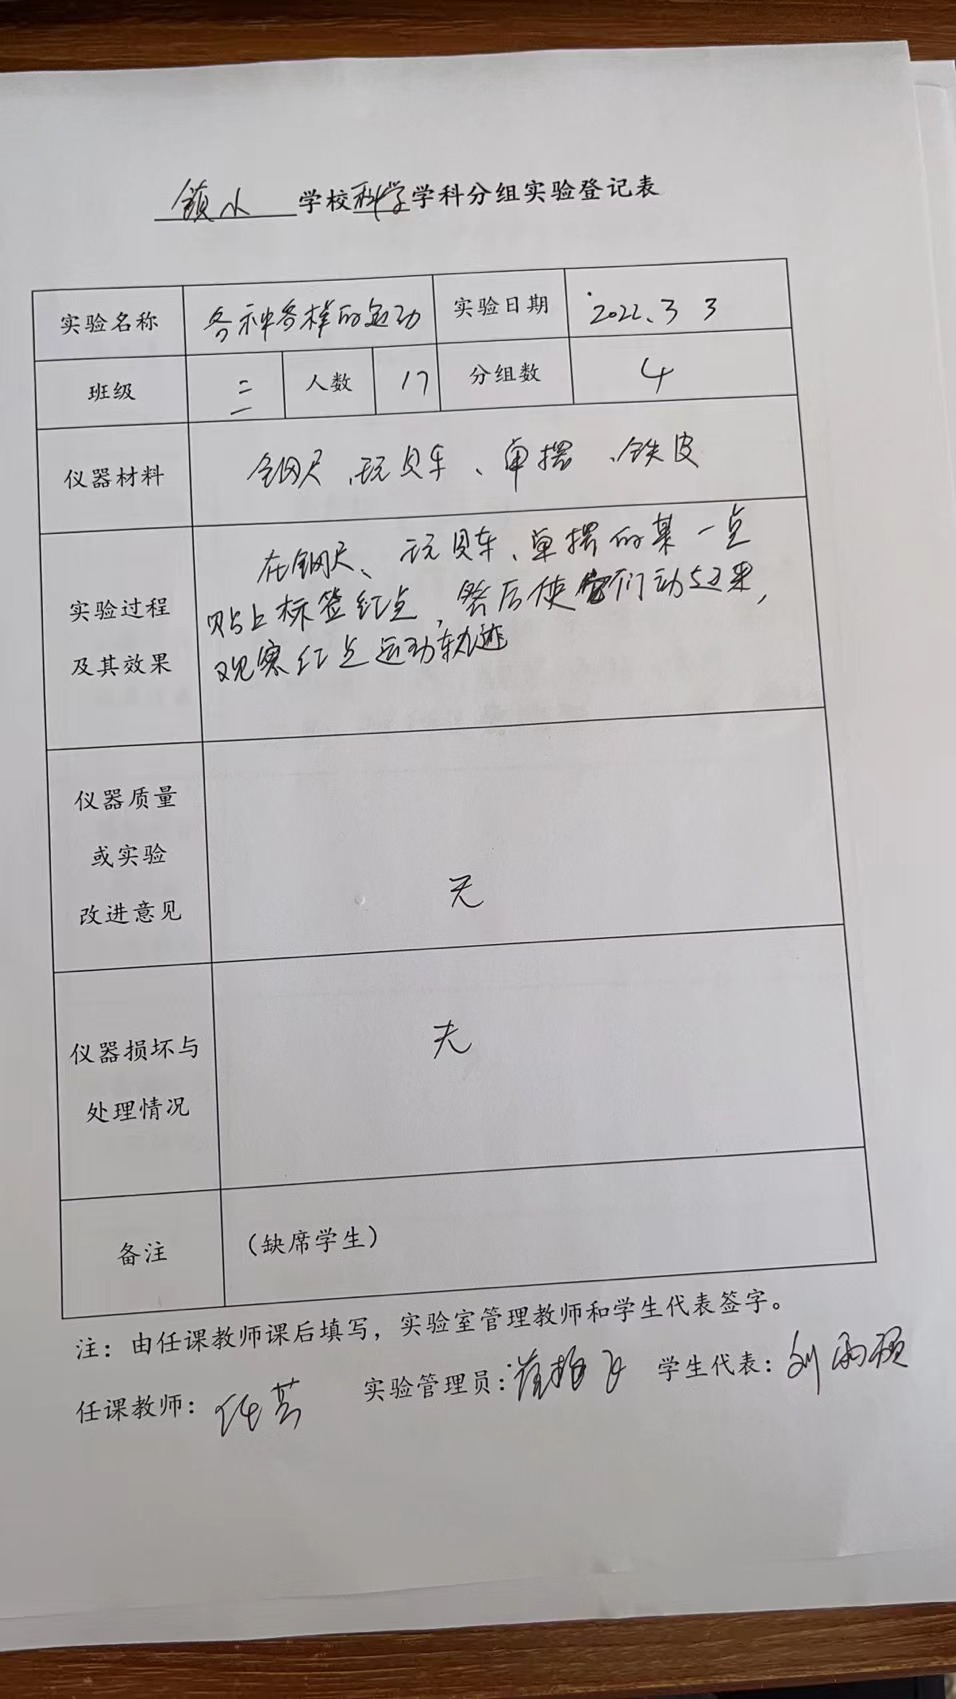 镇小学校科学学科分组实验登记表
实验名称 各种各样的运动 实验日期 2022.3 3
班级 三 人数 17 分组数 4
仪器材料 钢尺、玩具车、单摆、铁皮
实验过程
及其效果
在钢尺、玩具车、单摆的某一点
贴上标签红点,然后使它们动起来,
观察红点运动轨迹
仪器质量
或实验
改进意见
无
仪器损坏与
处理情况
无
备注 (缺席学生)
注:由任课教师课后填写,实验室管理教师和学生代表签字。
任课教师:任芸 实验管理员: 学生代表:刘雨硕